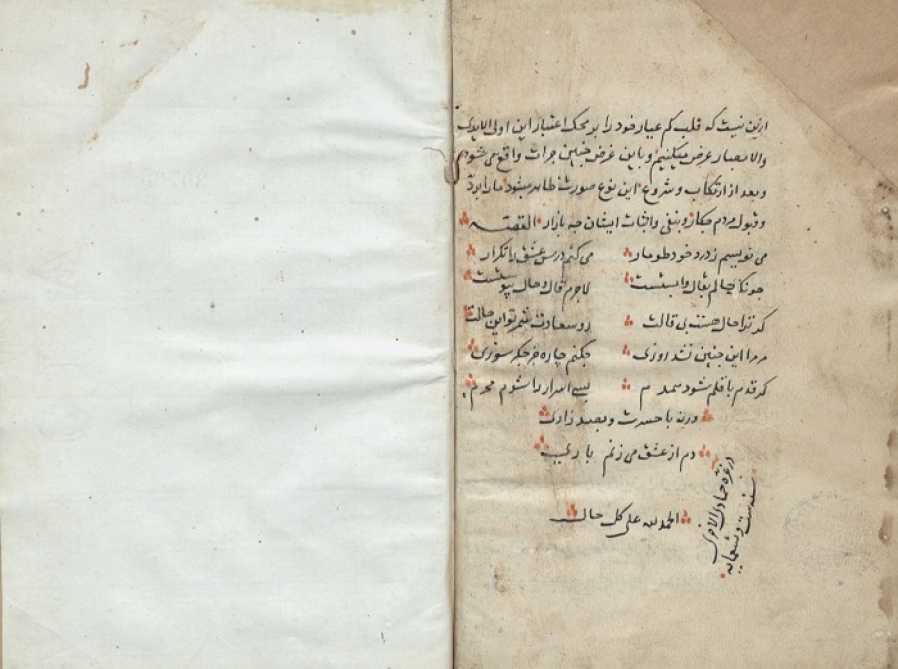 ازین نیست که قلب کم عیار خود را بر محک اعتبار این اولی الایدی
والابصار عرض میکنیم و باین غرض چنین جرات واقع می شود
و بعد از ارتکاب و شروع این نوع صورت ظاهر میشود ما را برد
و قبول مردم چکار و بنفی و اثبات ایشان چه بازار القصه
می نویسم ز درد خود طومار می کنم درس عشق را تکرار
چونکه حالم بقال وابستست لاجرم قال و حال پیوستست
که ترا حال هست بی قالت رو سعادت شمر تو این حالت
مر مرا این چنین نشد روزی چکنم چاره جز جگر سوزی
که قدم با قلم شود همدم بس اسرار را شوم محرم
ورنه با حسرت و بصد زاری
دم از عشق می زنم باری
الحمد لله علی کل حال
در غره جمادی الاخری
سنه ست و ثمانمایه